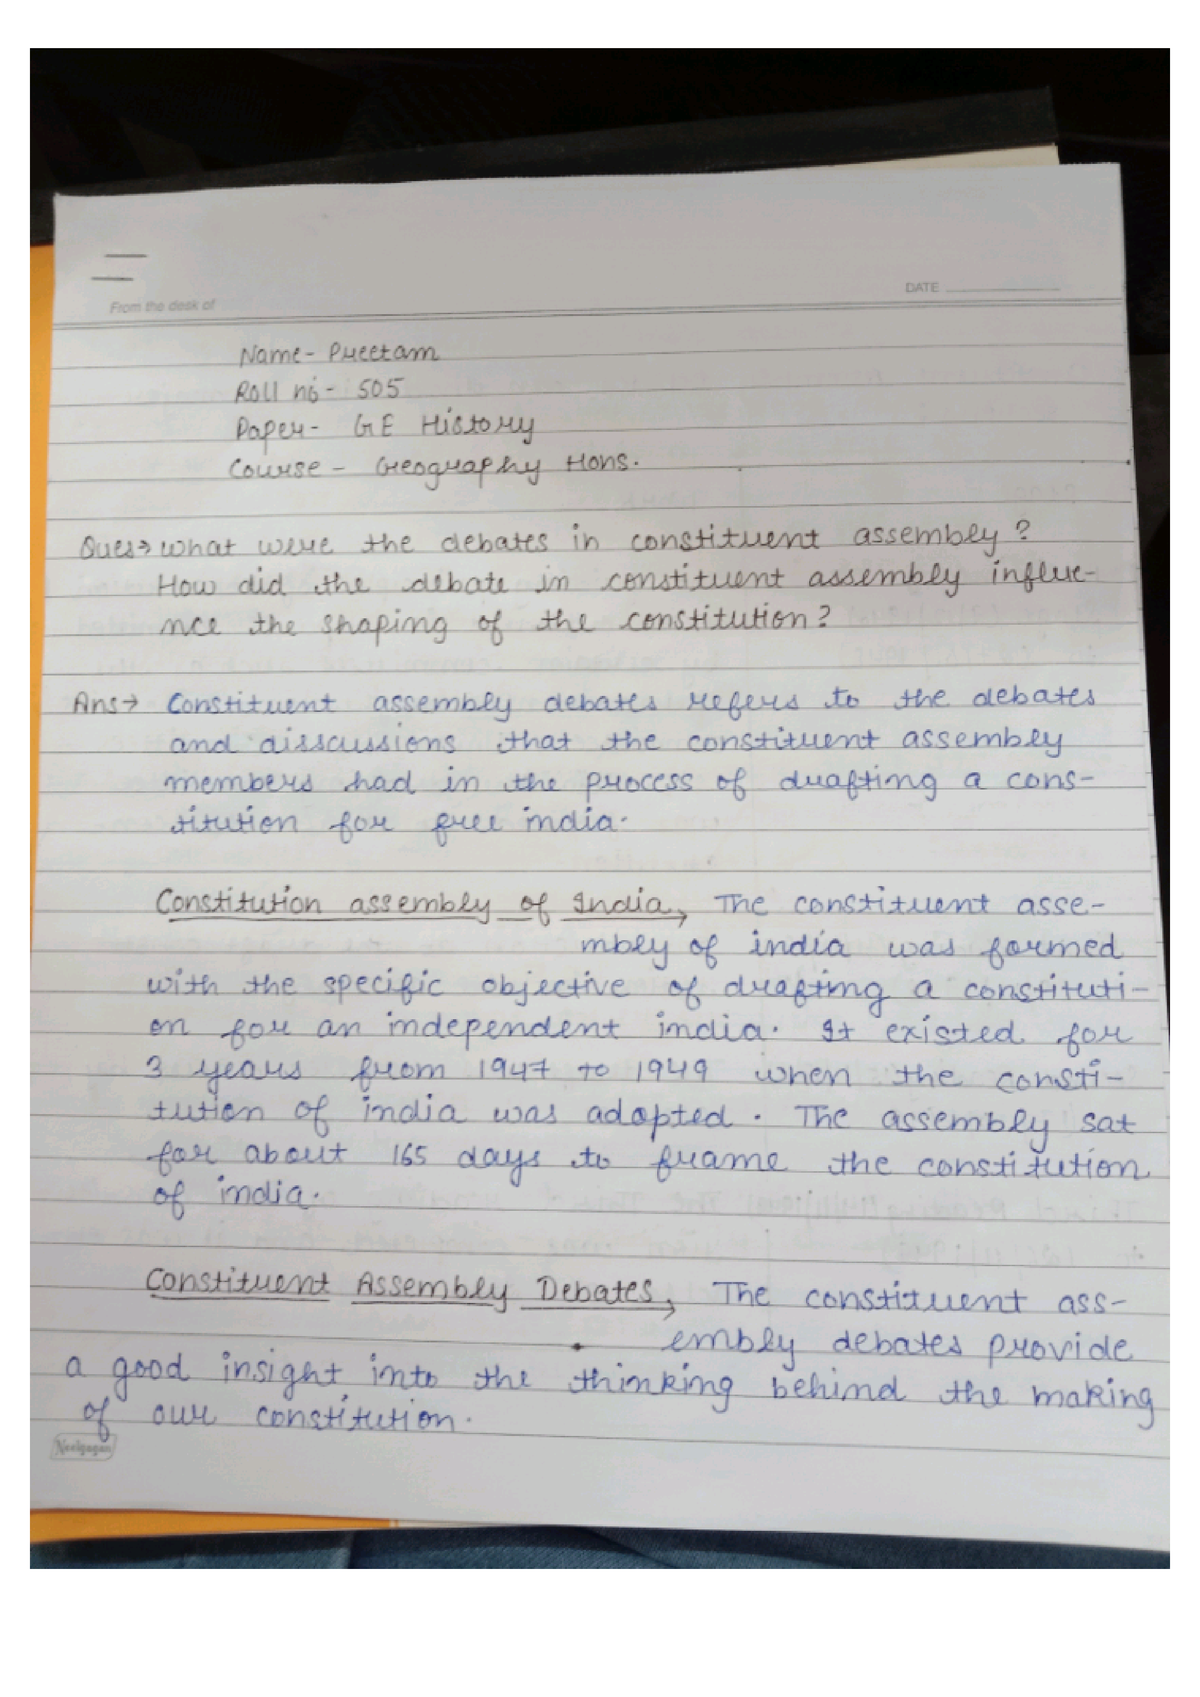 DATE
From the desk of
Name- Preetam
Roll no- 505
Paper- GE History
Course - Geography Hons.
Ques→ what were the debates in constituent assembly ?
How did the debate in constituent assembly influe-
nce the shaping of the constitution ?
Ans→ Constituent assembly debates refers to the debates
and disscussions that the constituent assembly
members had in the process of drafting a cons-
titution for free india.
Constitution assembly of India, The constituent asse-
mbly of india was formed
with the specific objective of drafting a constituti-
on for an independent india. It existed for
3 years from 1947 to 1949 when the consti-
tution of india was adopted. The assembly sat
for about 165 days to frame the constitution
of india.
Constituent Assembly Debates, The constituent ass-
embly debates provide
a good insight into the thinking behind the making
of our constitution.
Neelgagan